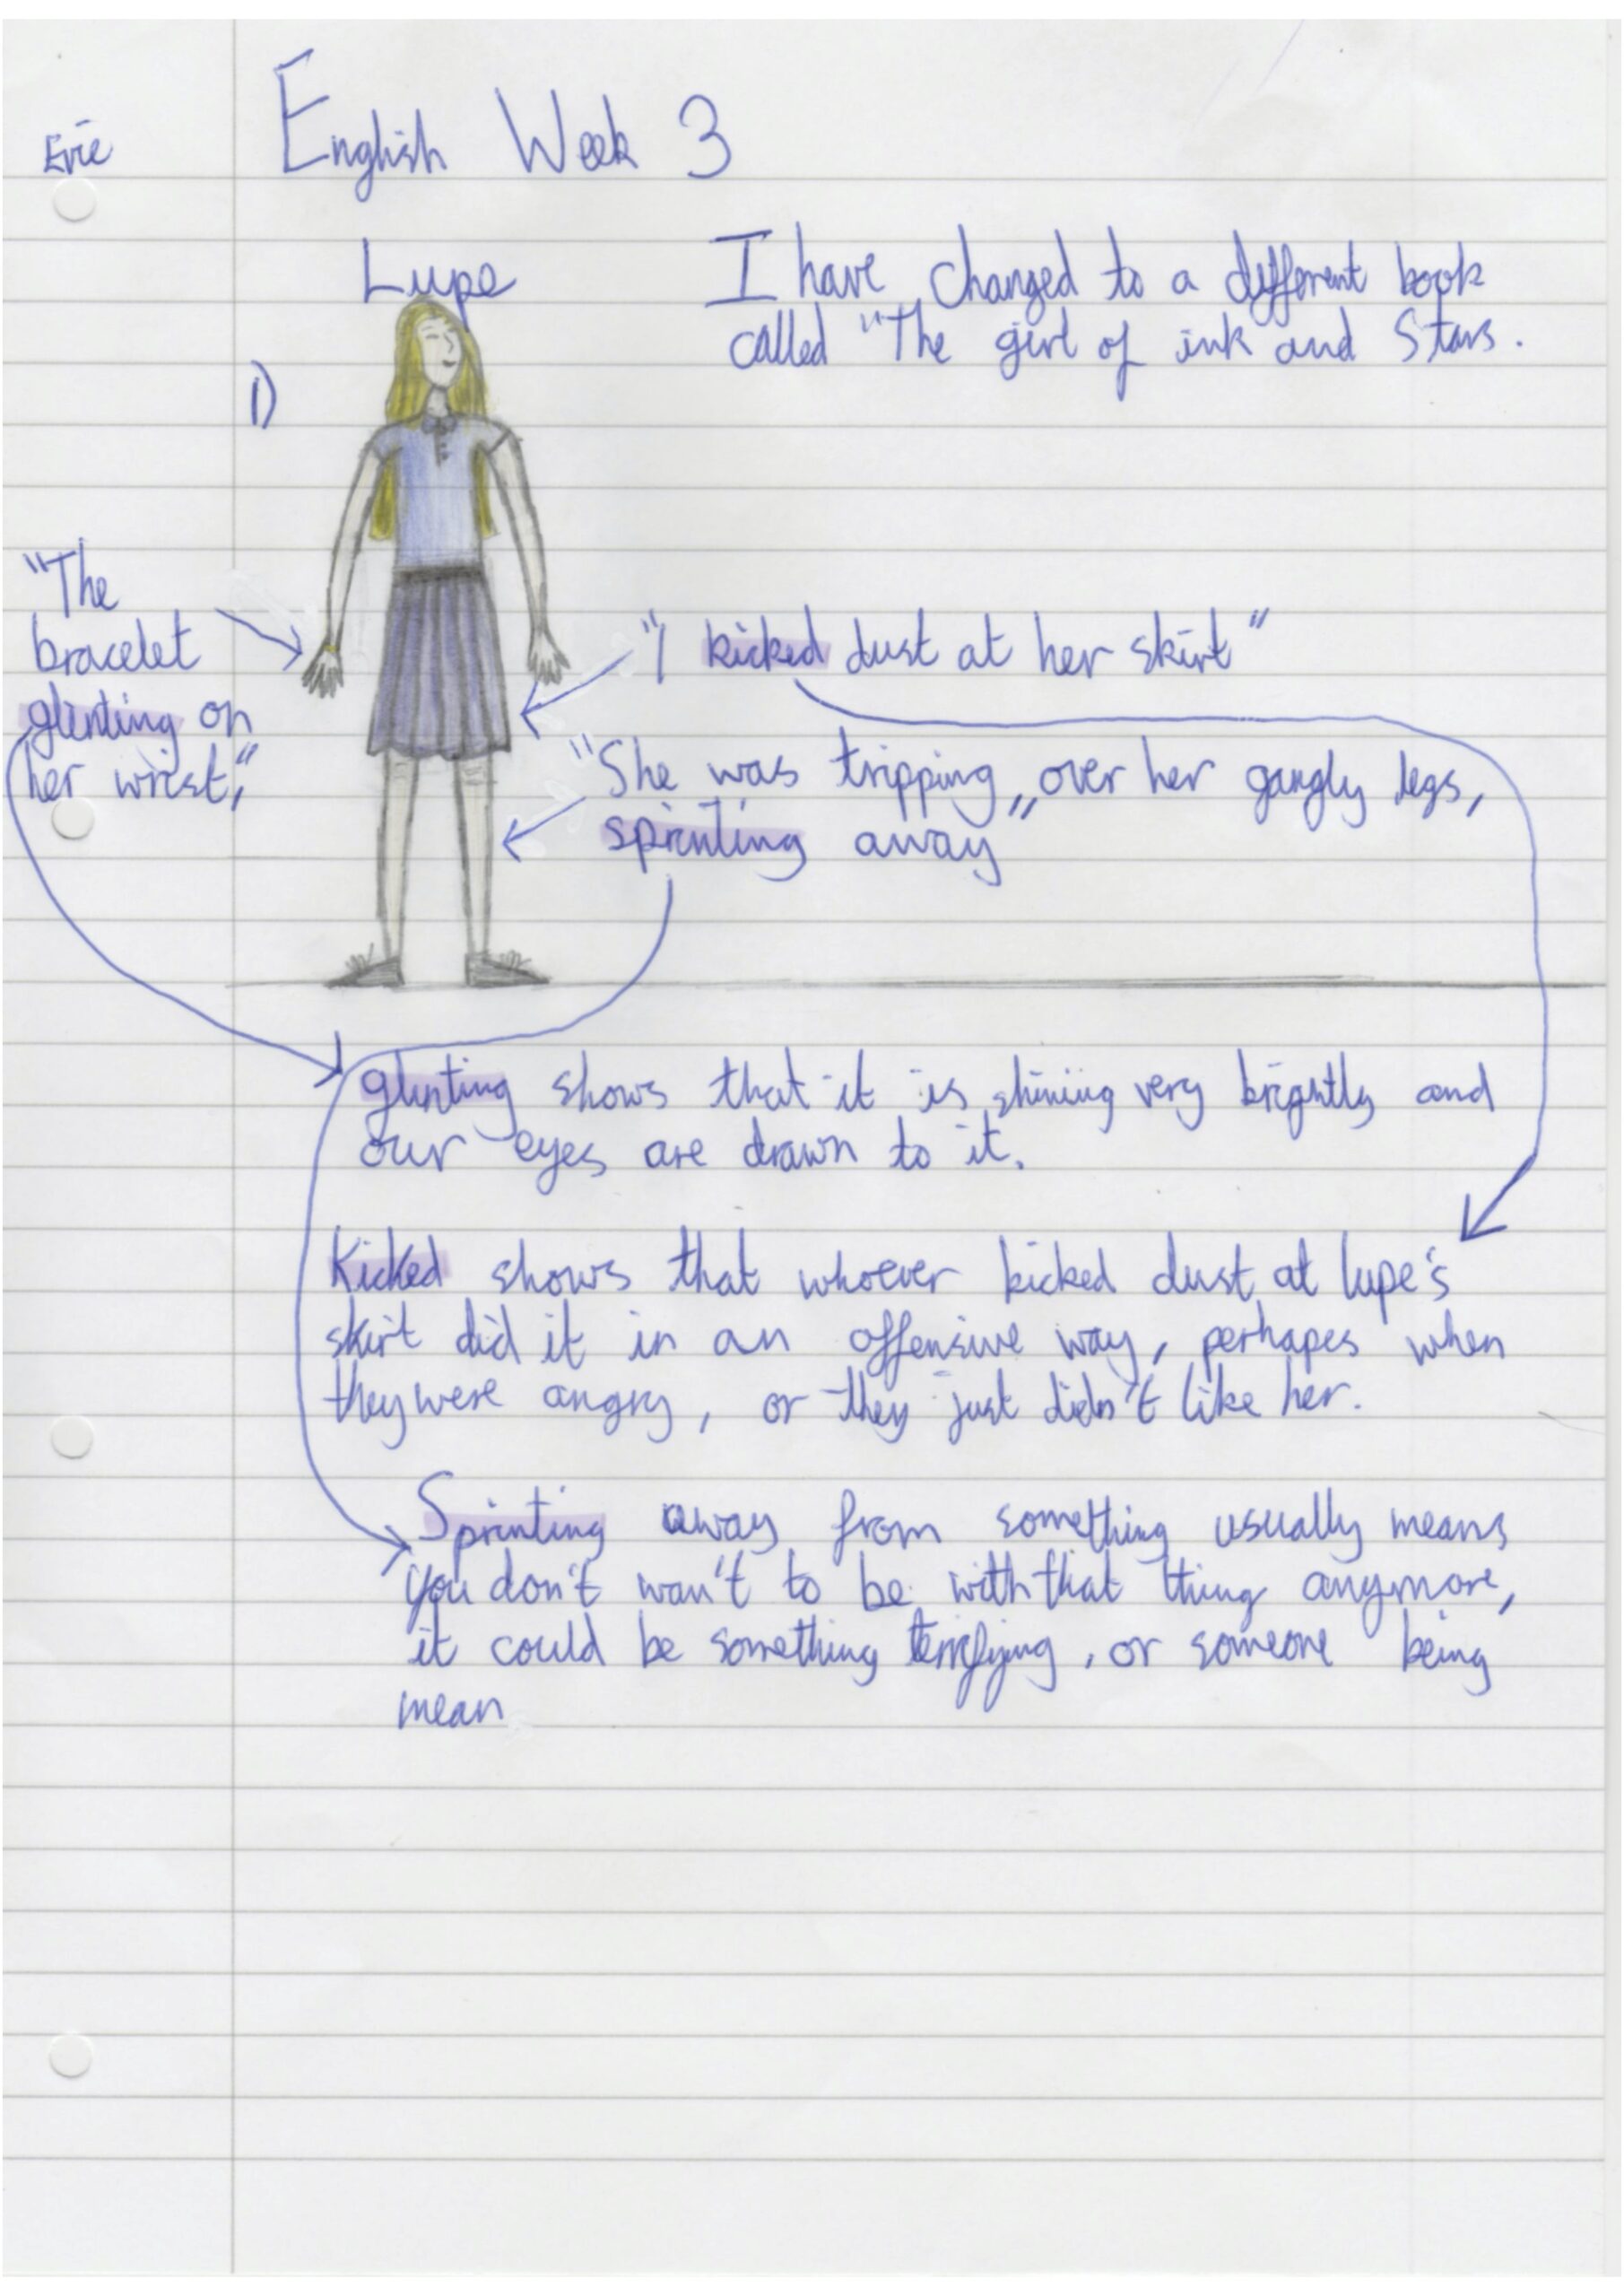 Evie
English Week 3
Lupe
I have changed to a different book
called "The girl of ink and Stars.
1)
"The
bracelet
glinting on
her wrist,"
"I kicked dust at her skirt"
"She was tripping,, over her gangly legs,
sprinting away"
glinting shows that it is shining very brightly and
our eyes are drawn to it.
Kicked shows that whoever kicked dust at lupe's
skirt did it in an offensive way, perhapes when
they were angry, or they just didn't like her.
Sprinting away from something usually means
you don't wan't to be with that thing anymore,
it could be something terrifying, or someone being
mean